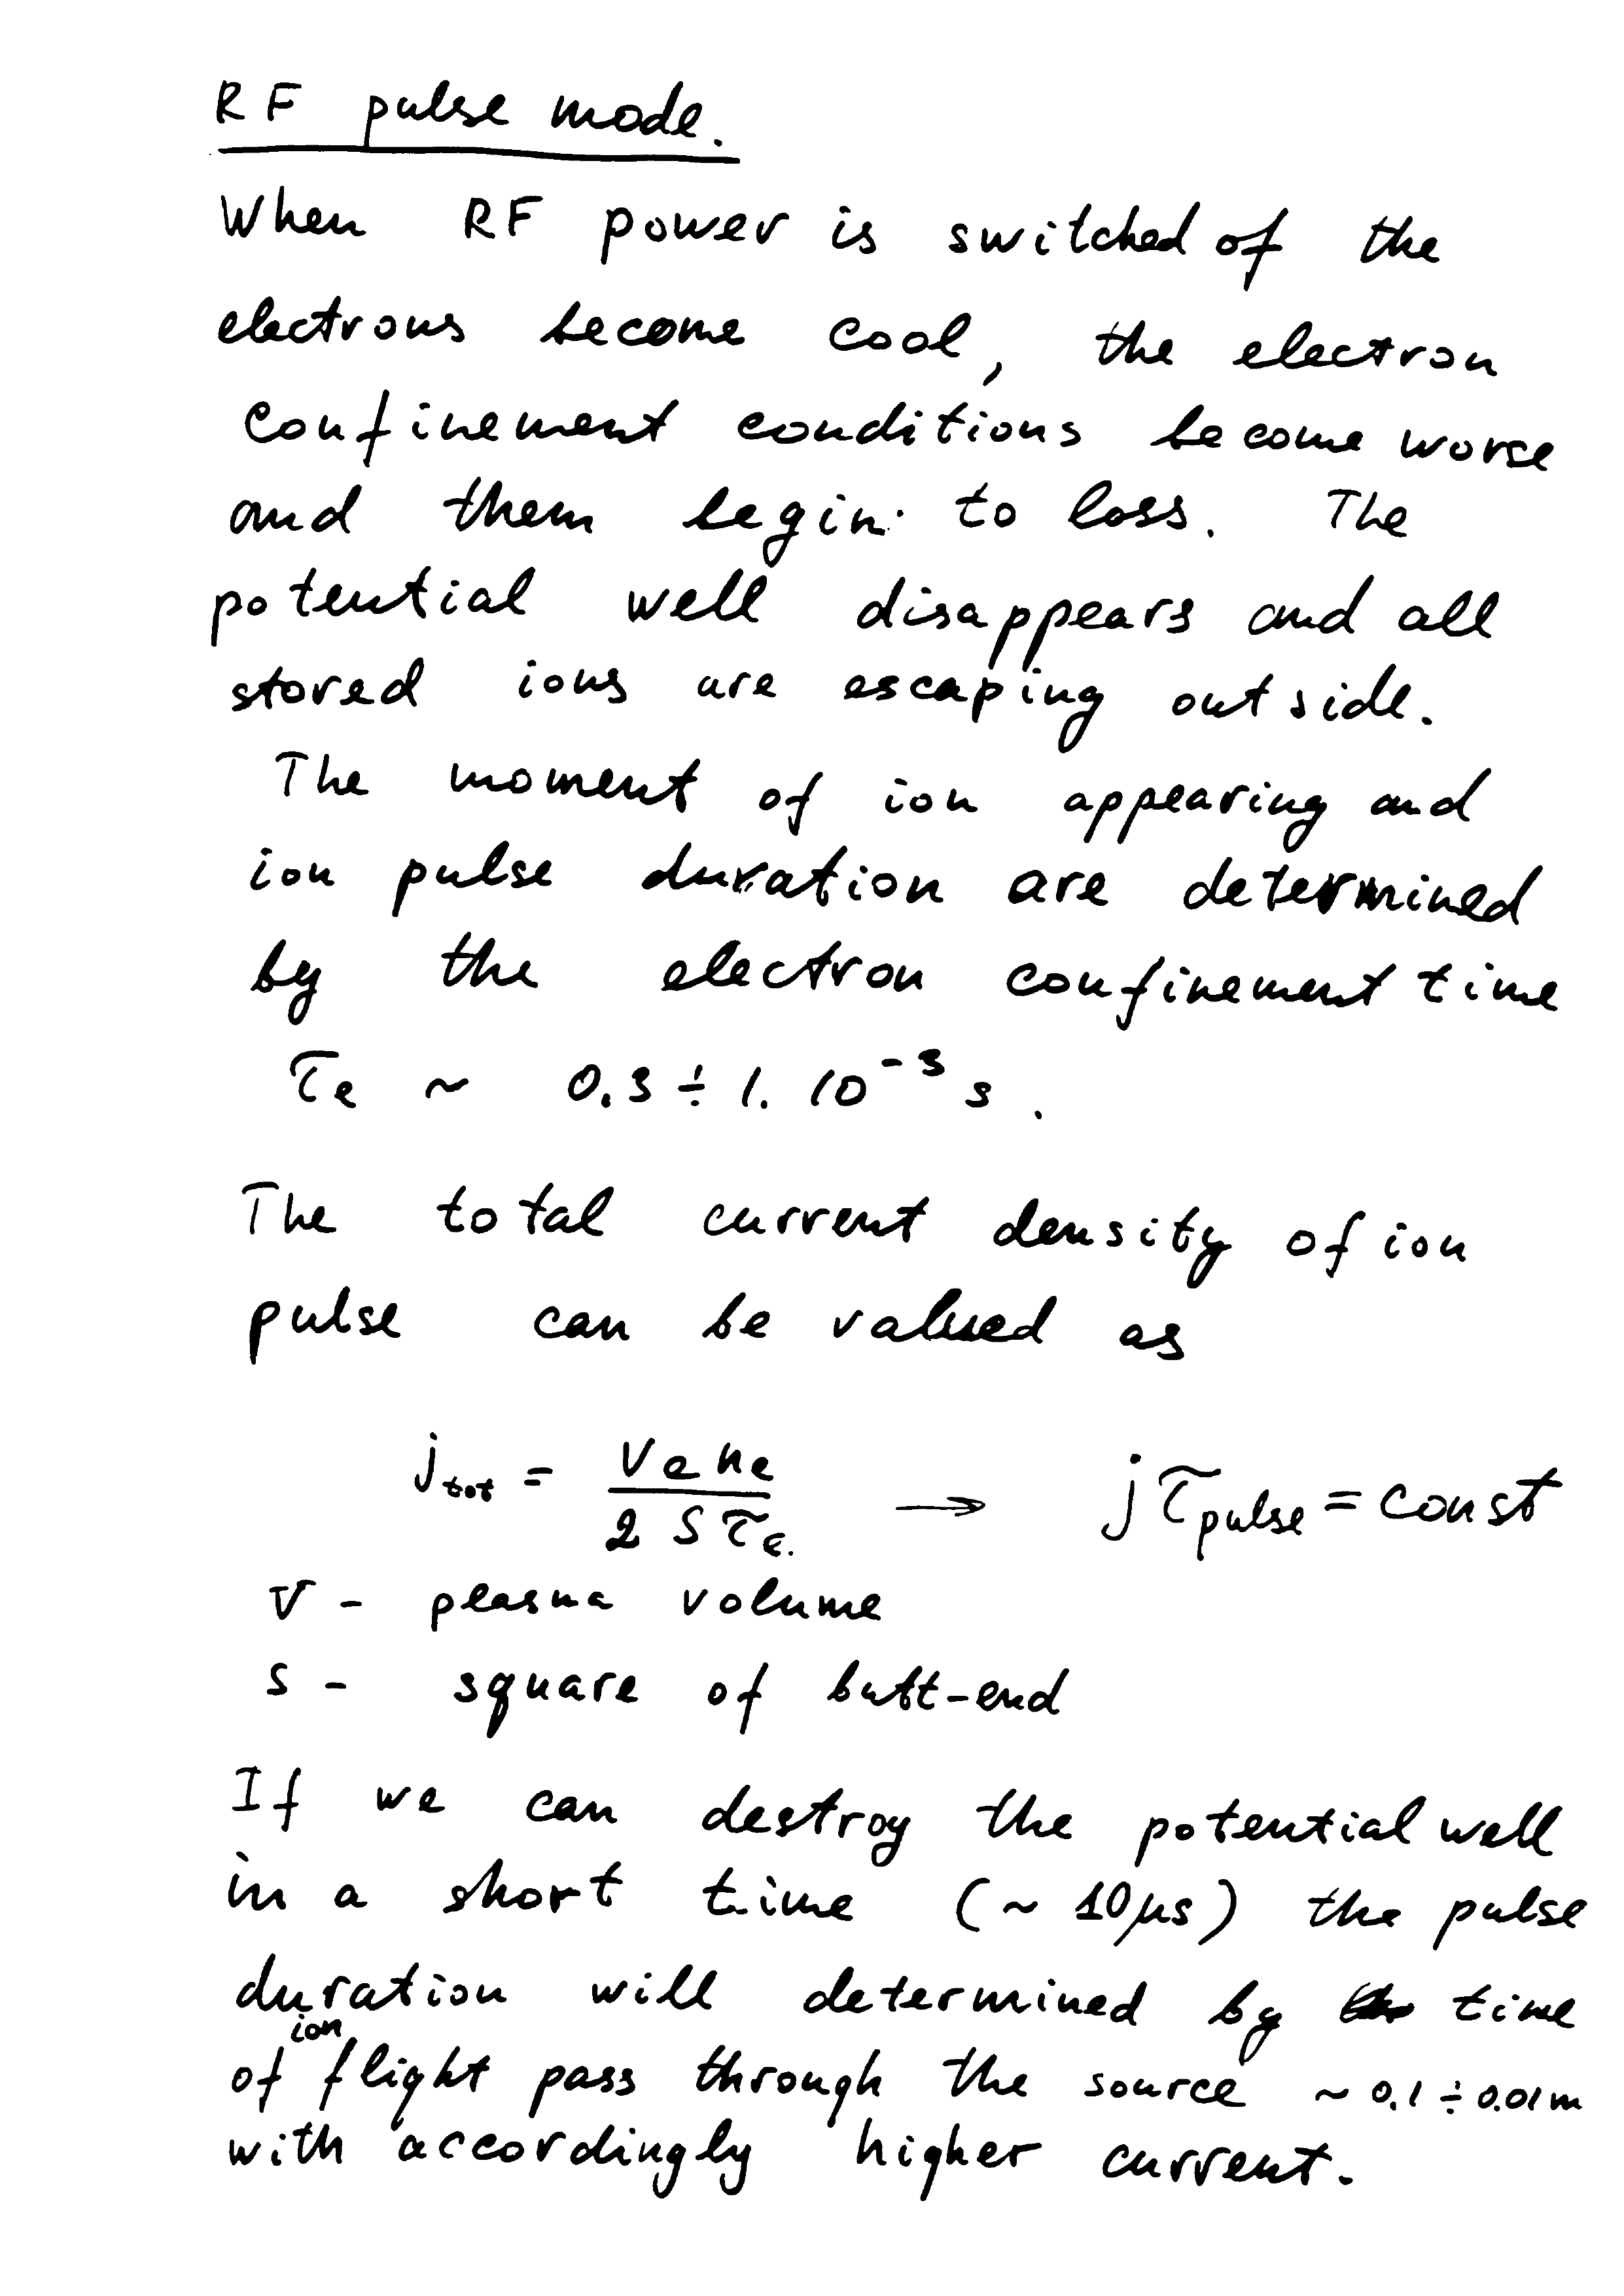 RF pulse mode.
When RF power is switched of the
electrons become cool, the electron
confinement conditions become worse
and them begin to loss. The
potential well disappears and all
stored ions are escaping outside.
The moment of ion appearing and
ion pulse duration are determined
by the electron confinement time
τe ~ 0.3 ÷ 1. 10⁻³ s.
The total current density of ion
pulse can be valued as
j tot = V e ne / 2 S τe. → j τpulse = const
V - plasma volume
S - square of butt-end
If we can destroy the potential well
in a short time (~ 10 μs) the pulse
duration will determined by time
of ion flight pass through the source ~ 0.1 ÷ 0.01 m
with accordingly higher current.